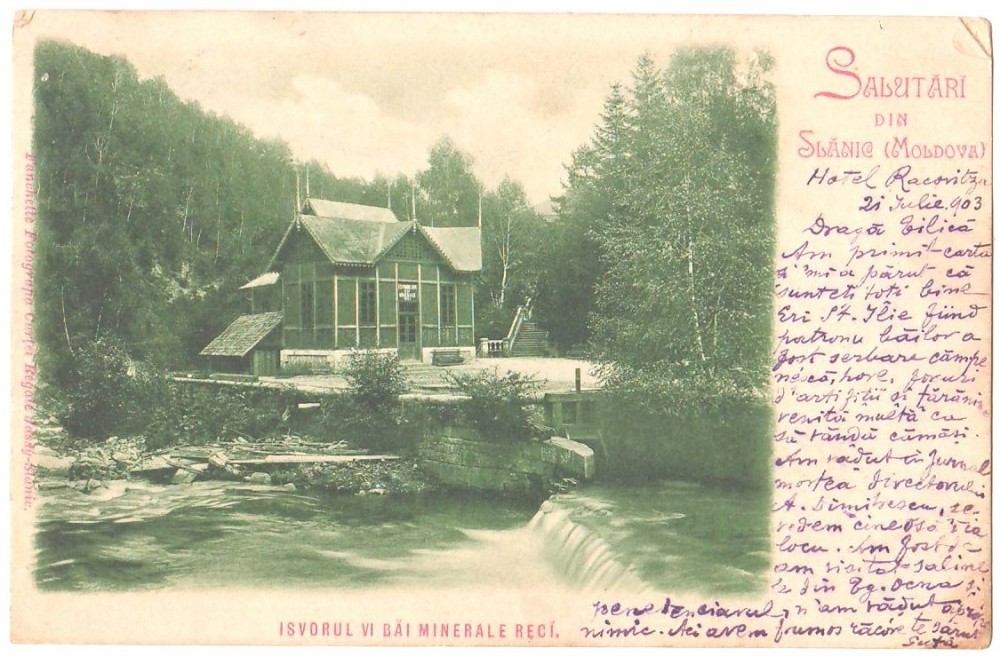 SALUTĂRI
DIN
SLĂNIC (MOLDOVA)
Hotel Racovitza
21 Iulie. 903
Dragă Lilică
Am primit carta
și mi a părut că
sunteți toți bine
Eri St. Ilie fiind
patronu băilor a
fost serbare câmpe
nescă, hore, focuri
d'artifiții și țărănime
venită multă ca
să vândă cămăși.
Am vădut în Jurnal
mortea directorului
A. Dimitrescu, se
vedem cine o să 'i ia
locu. Am fost de
am visitat saline
le din Tg. Ocna și
penetenciarul, n'am vădut
nimic. Aci avem frumos răcore te sărut
ISVORUL VI BĂI MINERALE RECI.
Fanchette Fotografia Curței Regale